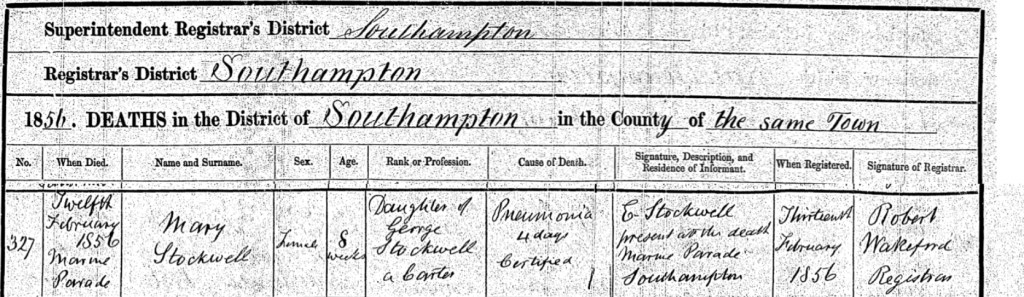 Superintendent Registrar's District Southampton
Registrar's District Southampton
1856. DEATHS in the District of Southampton in the County of the same Town
No. When Died. Name and Surname. Sex. Age. Rank or Profession. Cause of Death. Signature, Description, and Residence of Informant. When Registered. Signature of Registrar.
327
Twelfth
February
1856
Marine
Parade
Mary
Stockwell
Female
8
weeks
Daughter of
George
Stockwell
a Carter
Pneumonia
4 days
Certified
E Stockwell
present at the death
Marine Parade
Southampton
Thirteenth
February
1856
Robert
Wakeford
Registrar